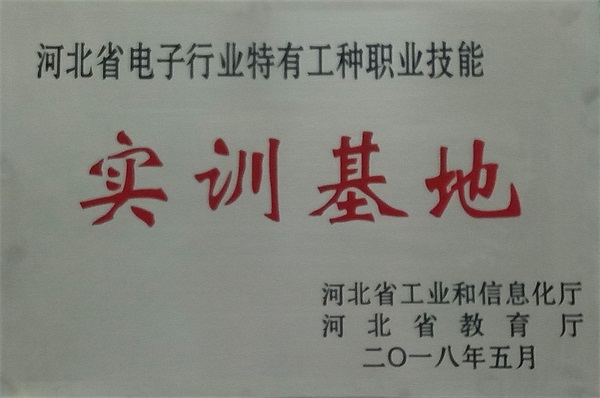 河北省电子行业特有工种职业技能
实训基地
河北省工业和信息化厅
河北省教育厅
二〇一八年五月